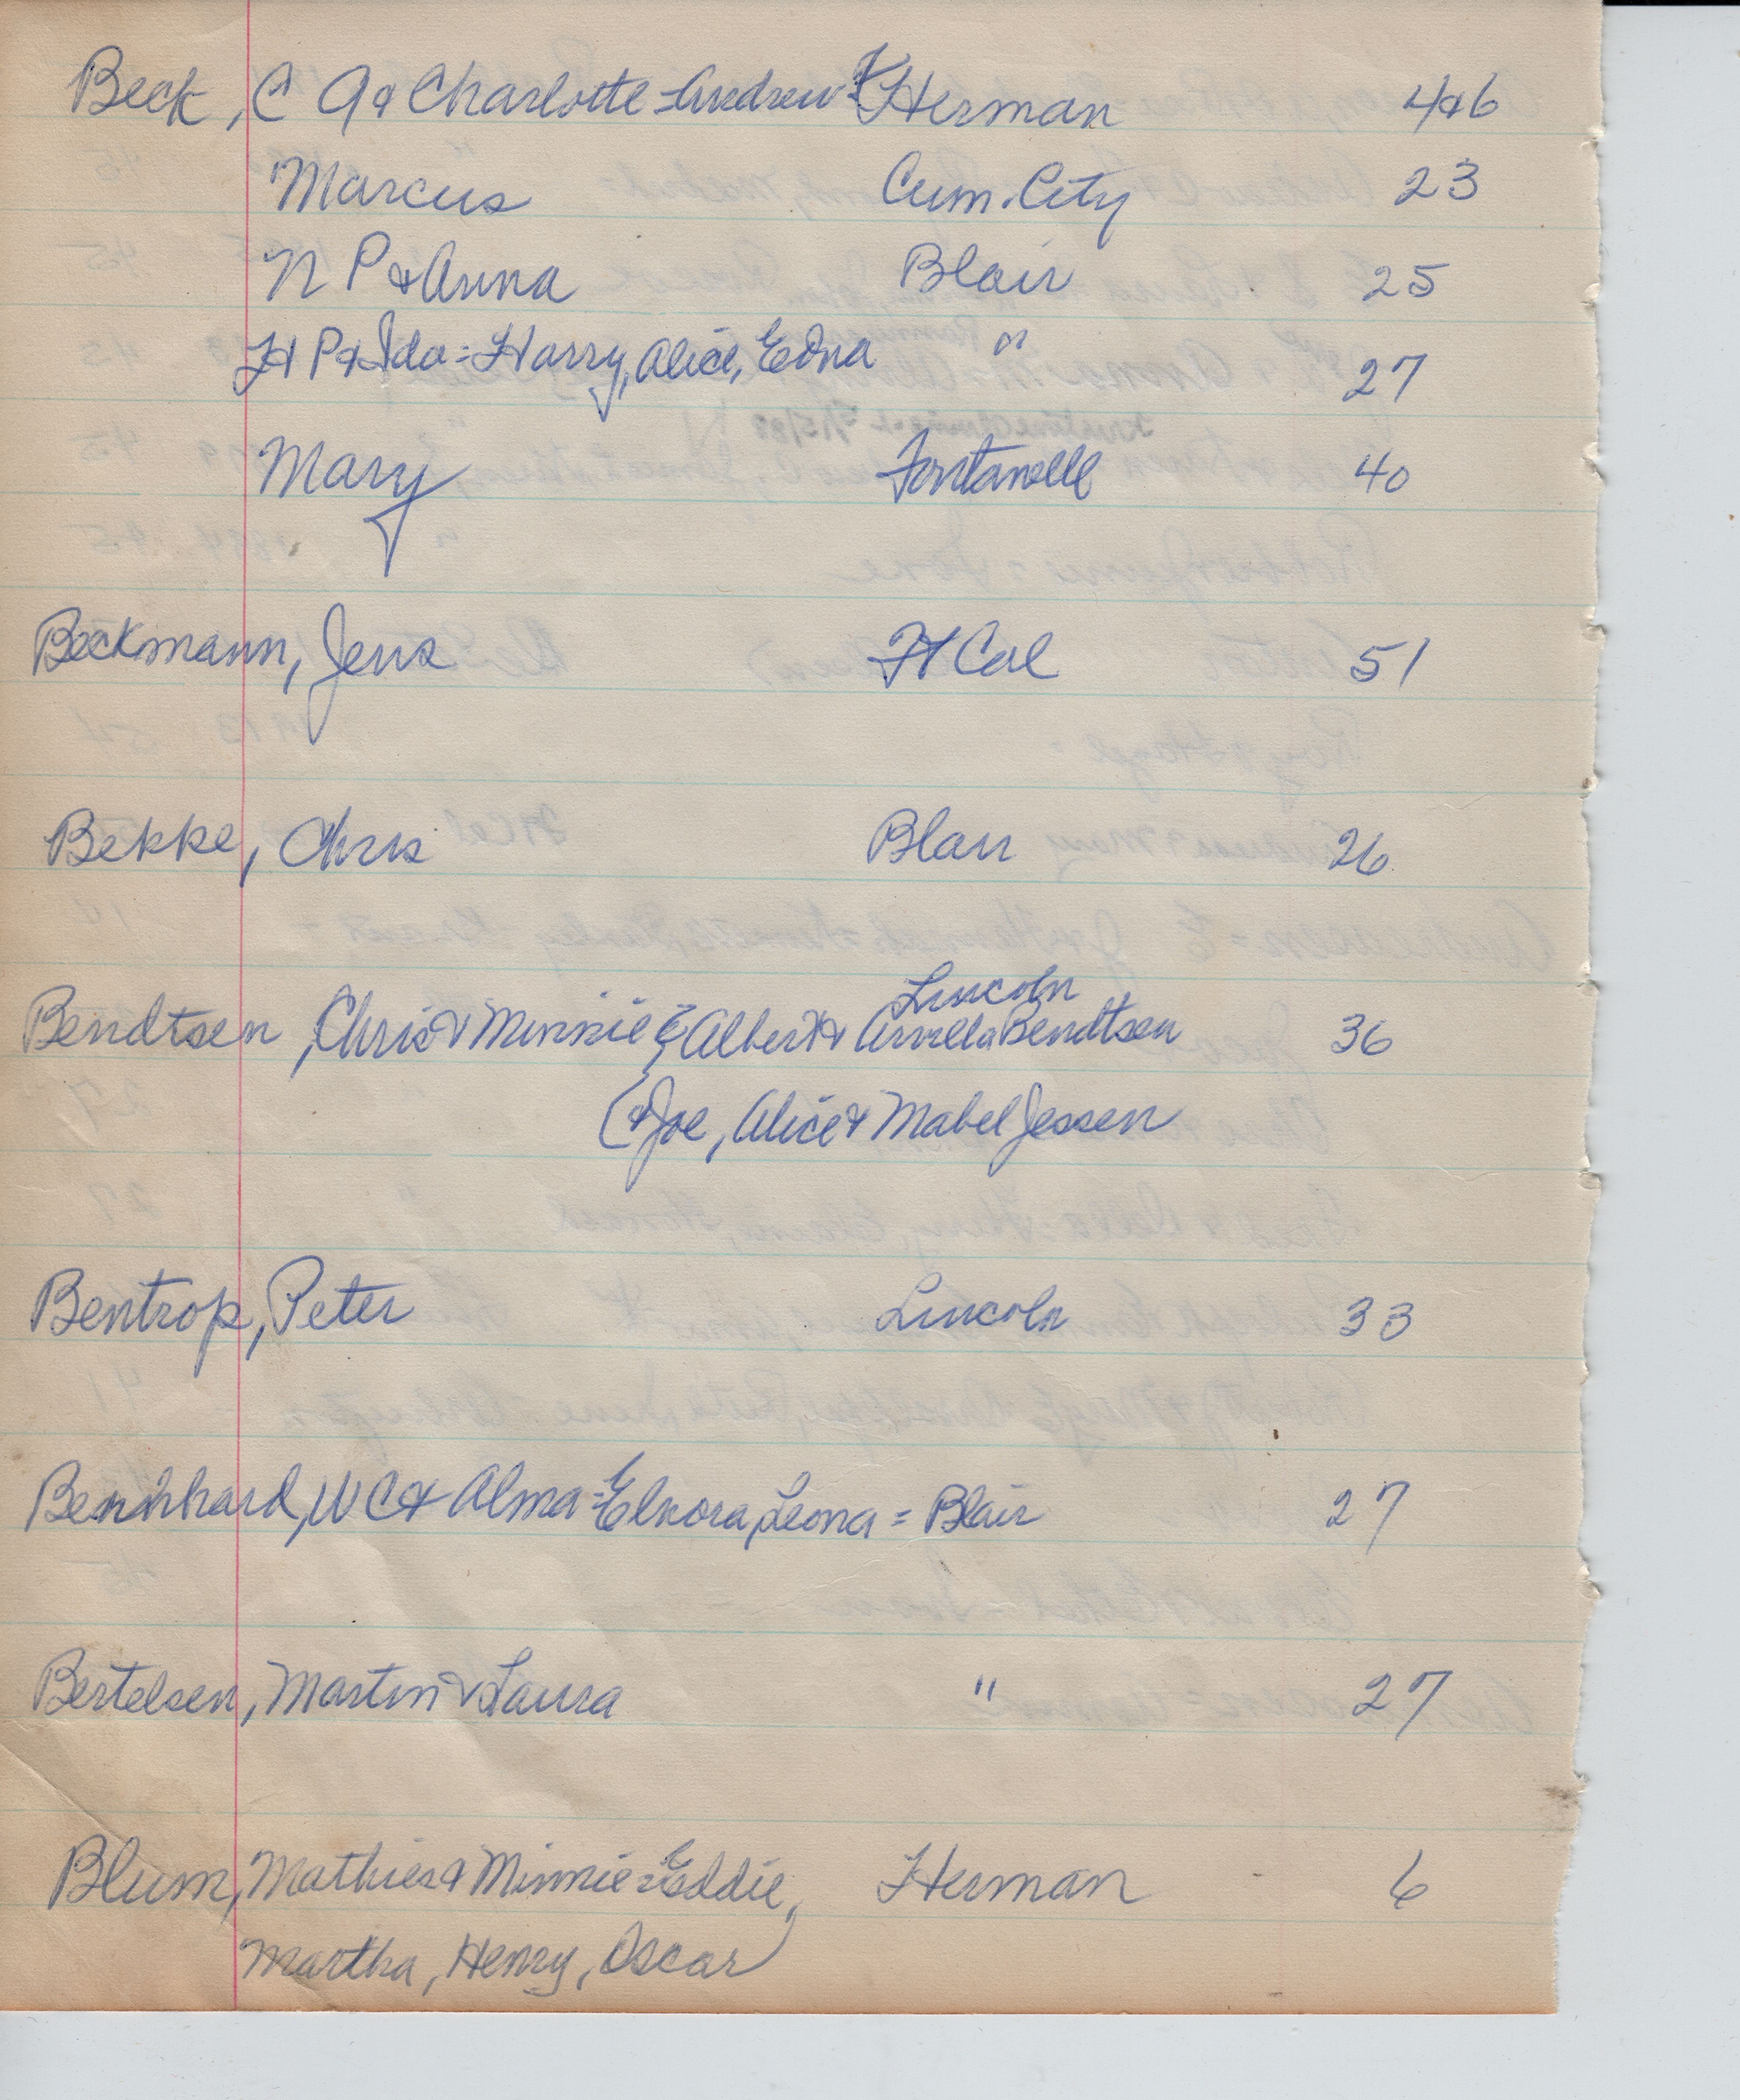 Beck, C A & Charlotte = Andrew K Herman 4&6
Marcus Cum. City 23
N P & Anna Blair 25
H P & Ida = Harry, Alice, Edna " 27
Mary Fontanelle 40
Beckmann, Jens Ft Cal 51
Bekke, Chris Blair 26
Lincoln
Bendtsen, Chris & Minnie = Albert & Arvilla Bendtsen 36
(& Joe, Alice & Mabel Jessen
Bentrop, Peter Lincoln 33
Bernhard, W C & Alma = Elnora, Leona = Blair 27
Bertelsen, Martin & Laura " 27
Blum, Mathies & Minnie = Eddie, Herman 6
Martha, Henry, Oscar